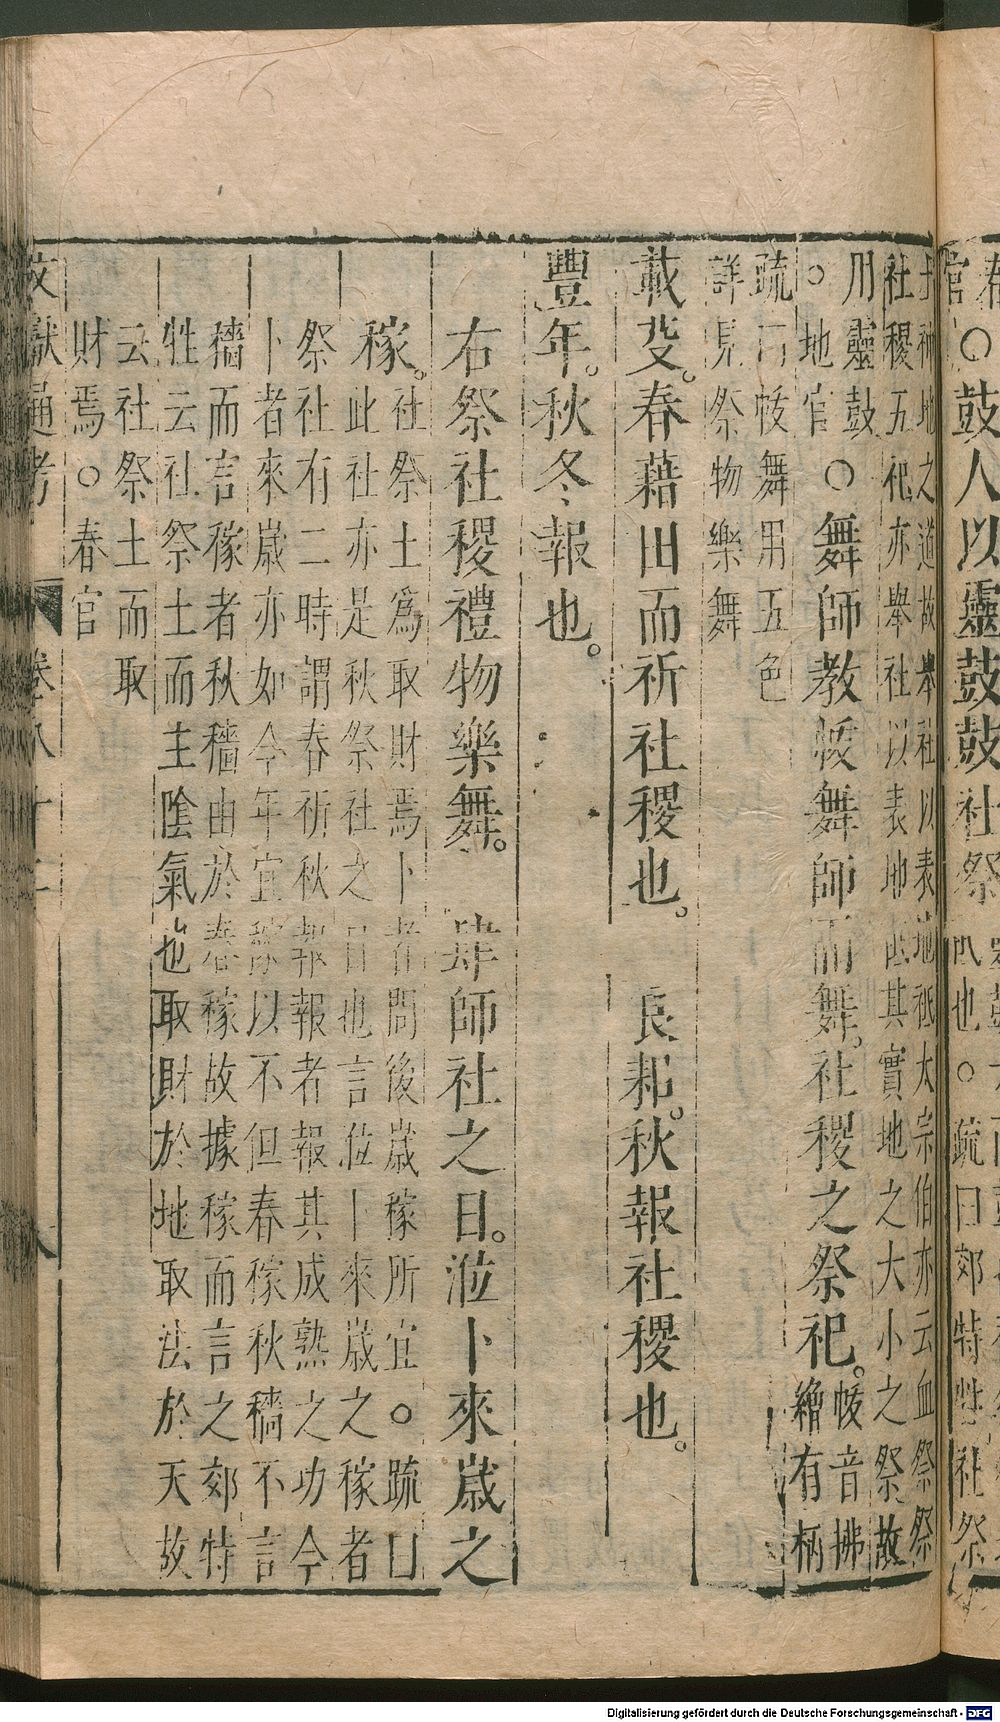 官○鼓人以靈鼓鼓社祭
祇也○疏曰郊特牲社祭
土神地之道故舉社以表地祇大宗伯亦云血祭祭
社稷五祀亦舉社以表地祇其實地之大小之祭故
用靈鼓
○地官
○舞師教帗舞師而舞。社稷之祭祀。
帗音拂
繒有柄
疏曰帗舞用五色
詳見祭物樂舞
載芟。春藉田而祈社稷也。 良耜。秋報社稷也。
豐年。秋冬報也。
右祭社稷禮物樂舞。 肆師社之日。涖卜來歲之
稼。
社祭土爲取財焉卜者問後歲稼所宜○疏曰
此社亦是秋祭社之日也言涖卜來歲之稼者
祭社有二時謂春祈秋報報者報其成熟之功今
卜者來歲亦如今年宜稼以不但春稼秋穡不言
穡而言稼者秋穡由於春稼故據稼而言之郊特
牲云社祭土而主陰氣也取財於地取法於天故
云社祭土而取
財焉○春官
文獻通考 卷八十 八
Digitalisierung gefördert durch die Deutsche Forschungsgemeinschaft - DFG